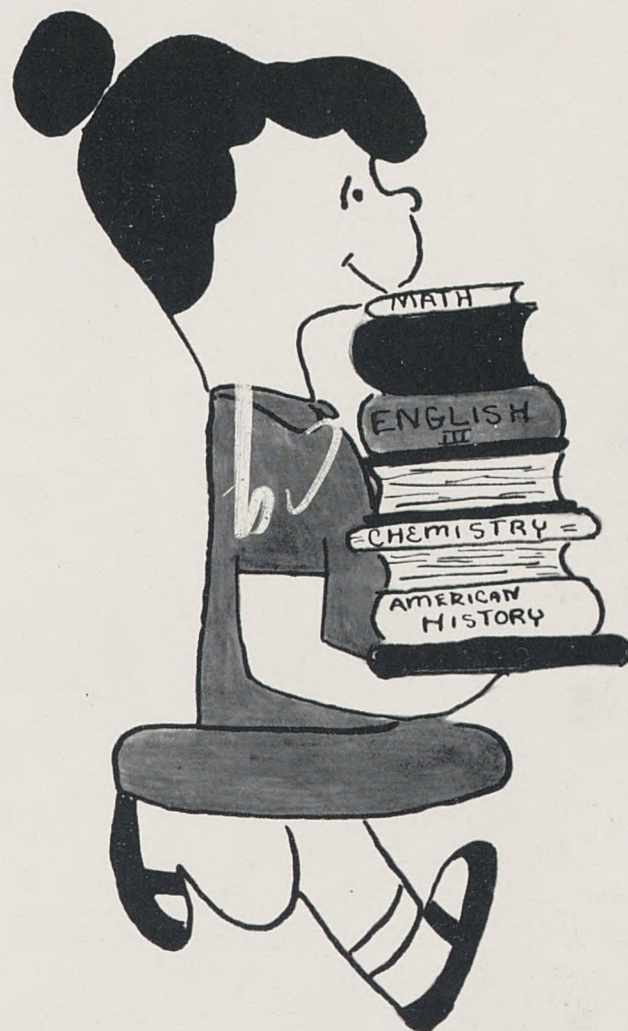 MATH
ENGLISH
III
= CHEMISTRY =
AMERICAN
HISTORY